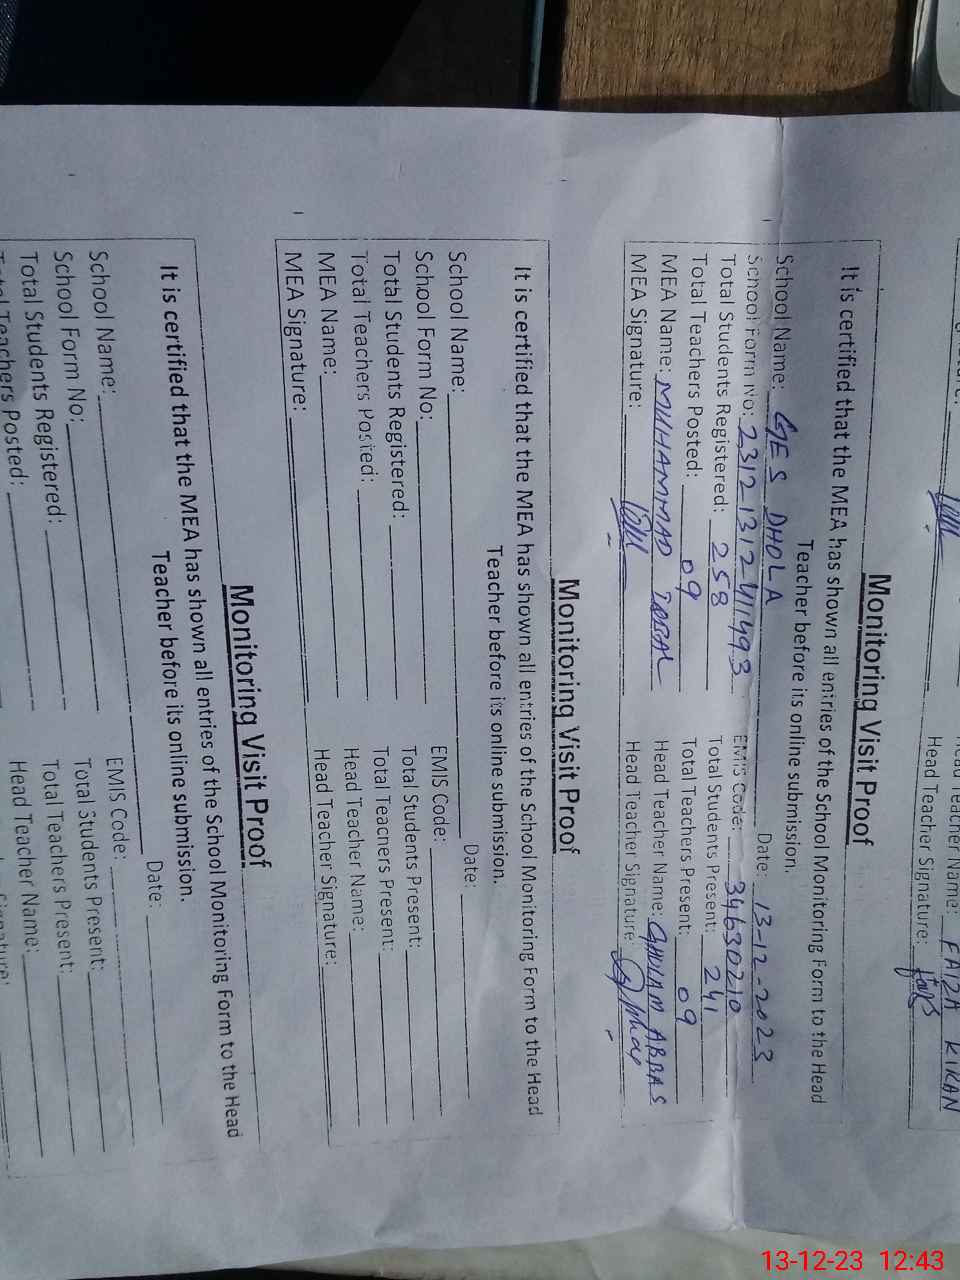 Head Teacher Name: FAIZA KIRAN
Head Teacher Signature:
Monitoring Visit Proof
It is certified that the MEA has shown all entries of the School Monitoring Form to the Head
Teacher before its online submission.
School Name: GES DHOLA Date: 13-12-2023
School Form No: 23121312411493 EMIS Code: 34630210
Total Students Registered: 258 Total Students Present: 241
Total Teachers Posted: 09 Total Teachers Present: 09
MEA Name: MUHAMMAD IQBAL Head Teacher Name: GHULAM ABBAS
MEA Signature: Head Teacher Signature:
Monitoring Visit Proof
It is certified that the MEA has shown all entries of the School Monitoring Form to the Head
Teacher before its online submission.
School Name: Date:
School Form No: EMIS Code:
Total Students Registered: Total Students Present:
Total Teachers Posted: Total Teachers Present:
MEA Name: Head Teacher Name:
MEA Signature: Head Teacher Signature:
Monitoring Visit Proof
It is certified that the MEA has shown all entries of the School Monitoring Form to the Head
Teacher before its online submission.
School Name: Date:
School Form No: EMIS Code:
Total Students Registered: Total Students Present:
Total Teachers Posted: Total Teachers Present:
Head Teacher Name:
13-12-23 12:43